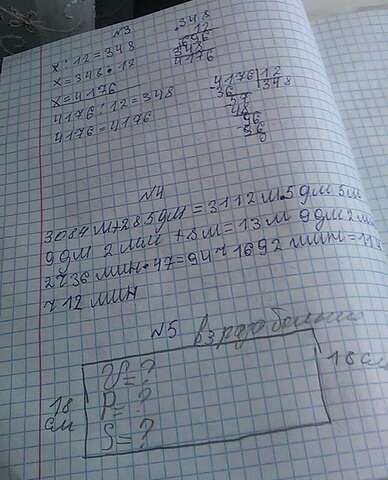 N3
x : 12 = 348
x = 348 · 12
x = 4176
4176 : 12 = 348
4176 = 4176
348
12
696
348
4176
4176 12
36 348
57
48
96
96
0
N4
3084 м + 285 дм = 3112 м 5 дм
9 дм 2 мм + 8 м = 13 м 9 дм 2 мм
2 ч 36 мин · 47 = 94 ч 1692 мин = 
ч 12 мин
N5 в 3 раза больше
18 см
18
см
V = ?
P = ?
S = ?